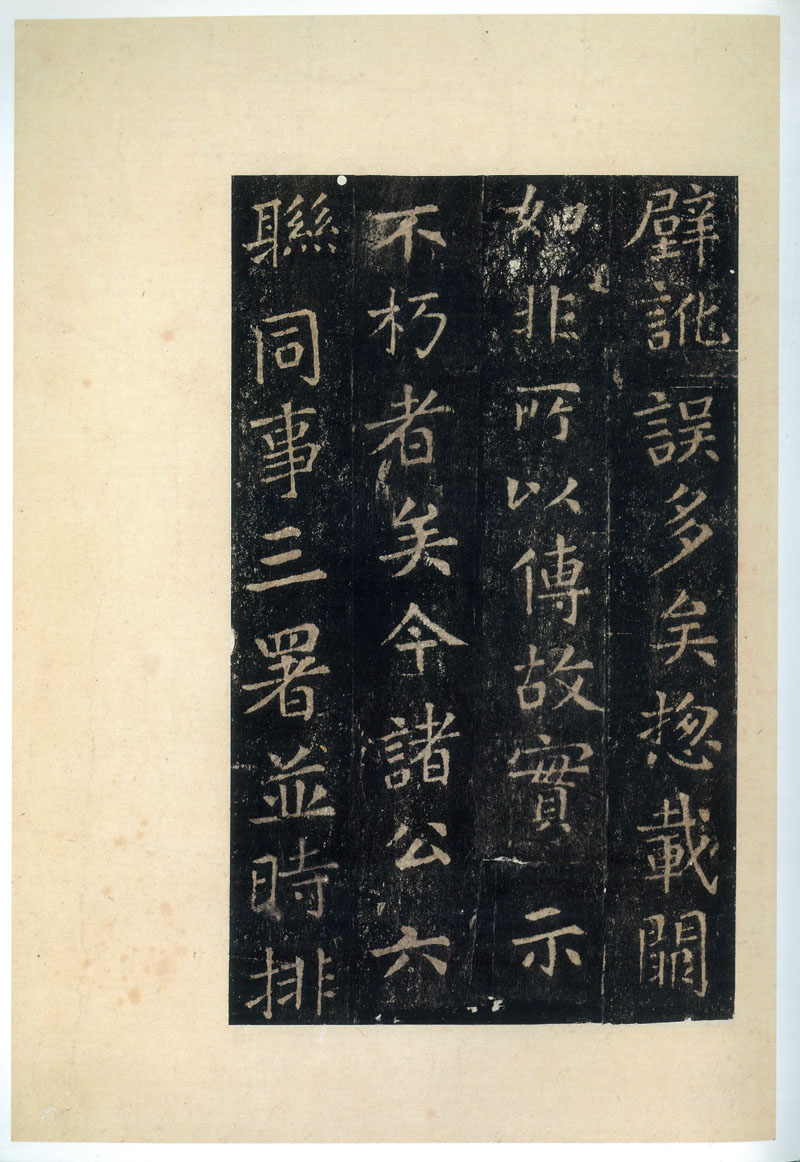 壁訛誤多矣惣載關
如非所以傳故實示
不朽者矣今諸公六
聯同事三署並時排